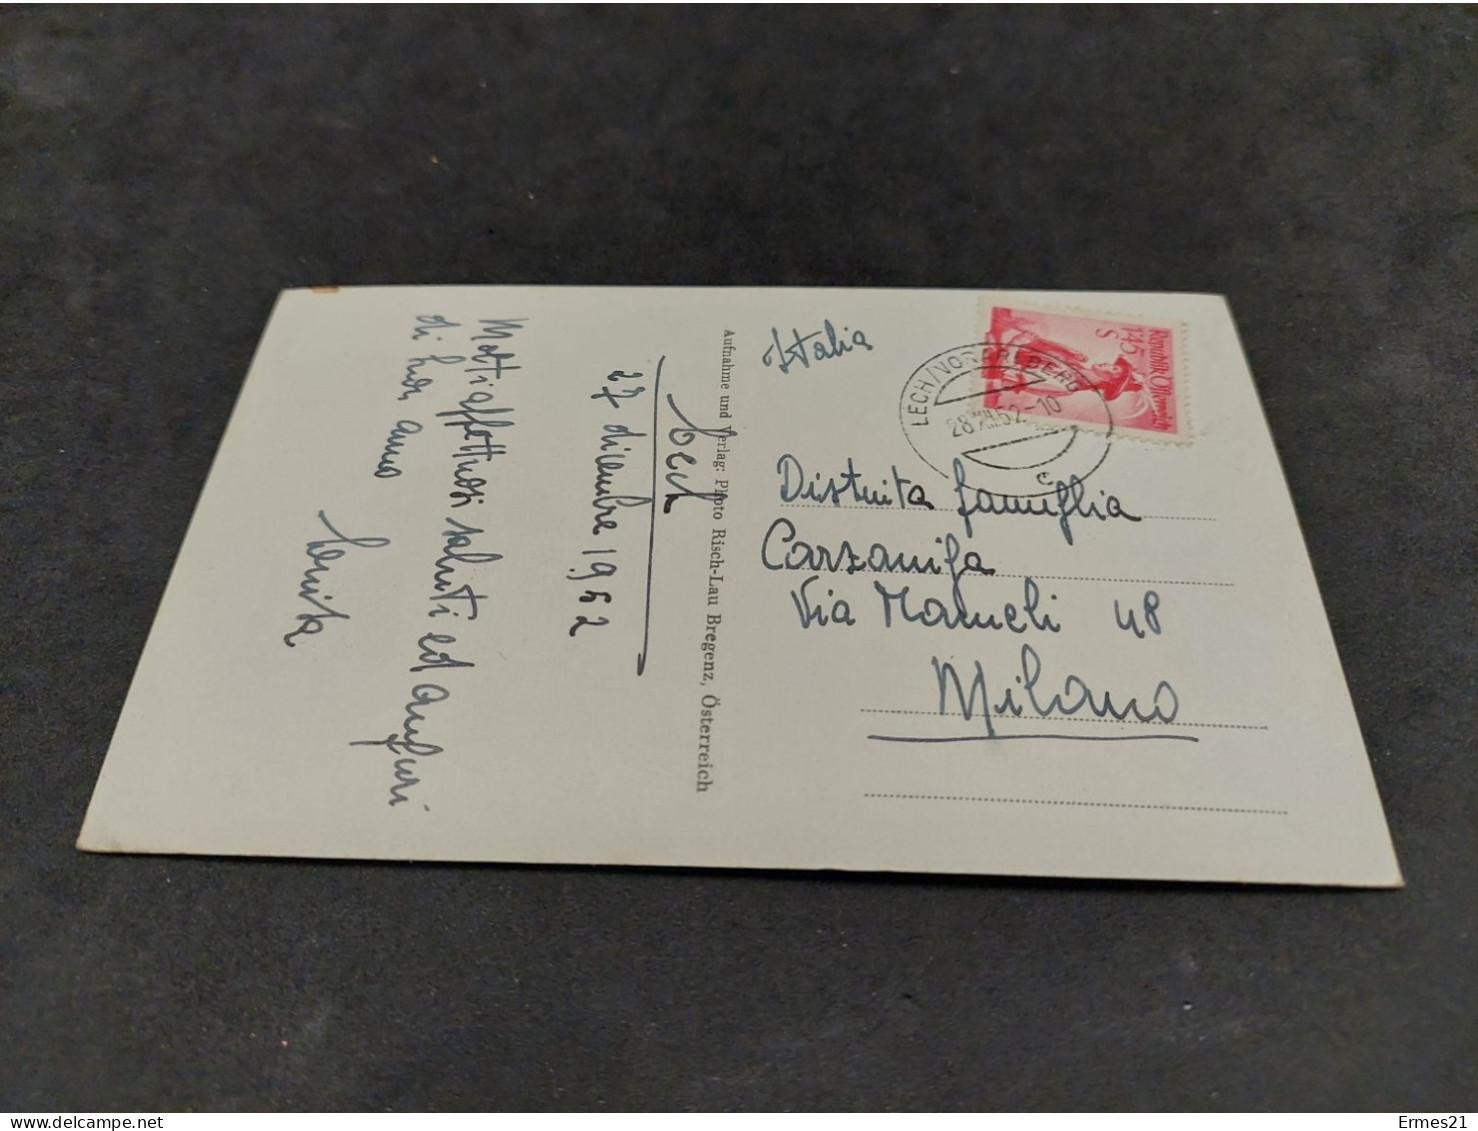 Lech
27 dicembre 1952
Molti affettuosi saluti ed auguri
di buon anno
Aufnahme und Verlag: Photo Risch-Lau Bregenz, Österreich
Italia
Republik Österreich
1'45
S
LECH/VORARLBERG
28.XII.52-10
c
Distinta famiglia
Carzaniga
Via Mameli 48
Milano
Ermes21